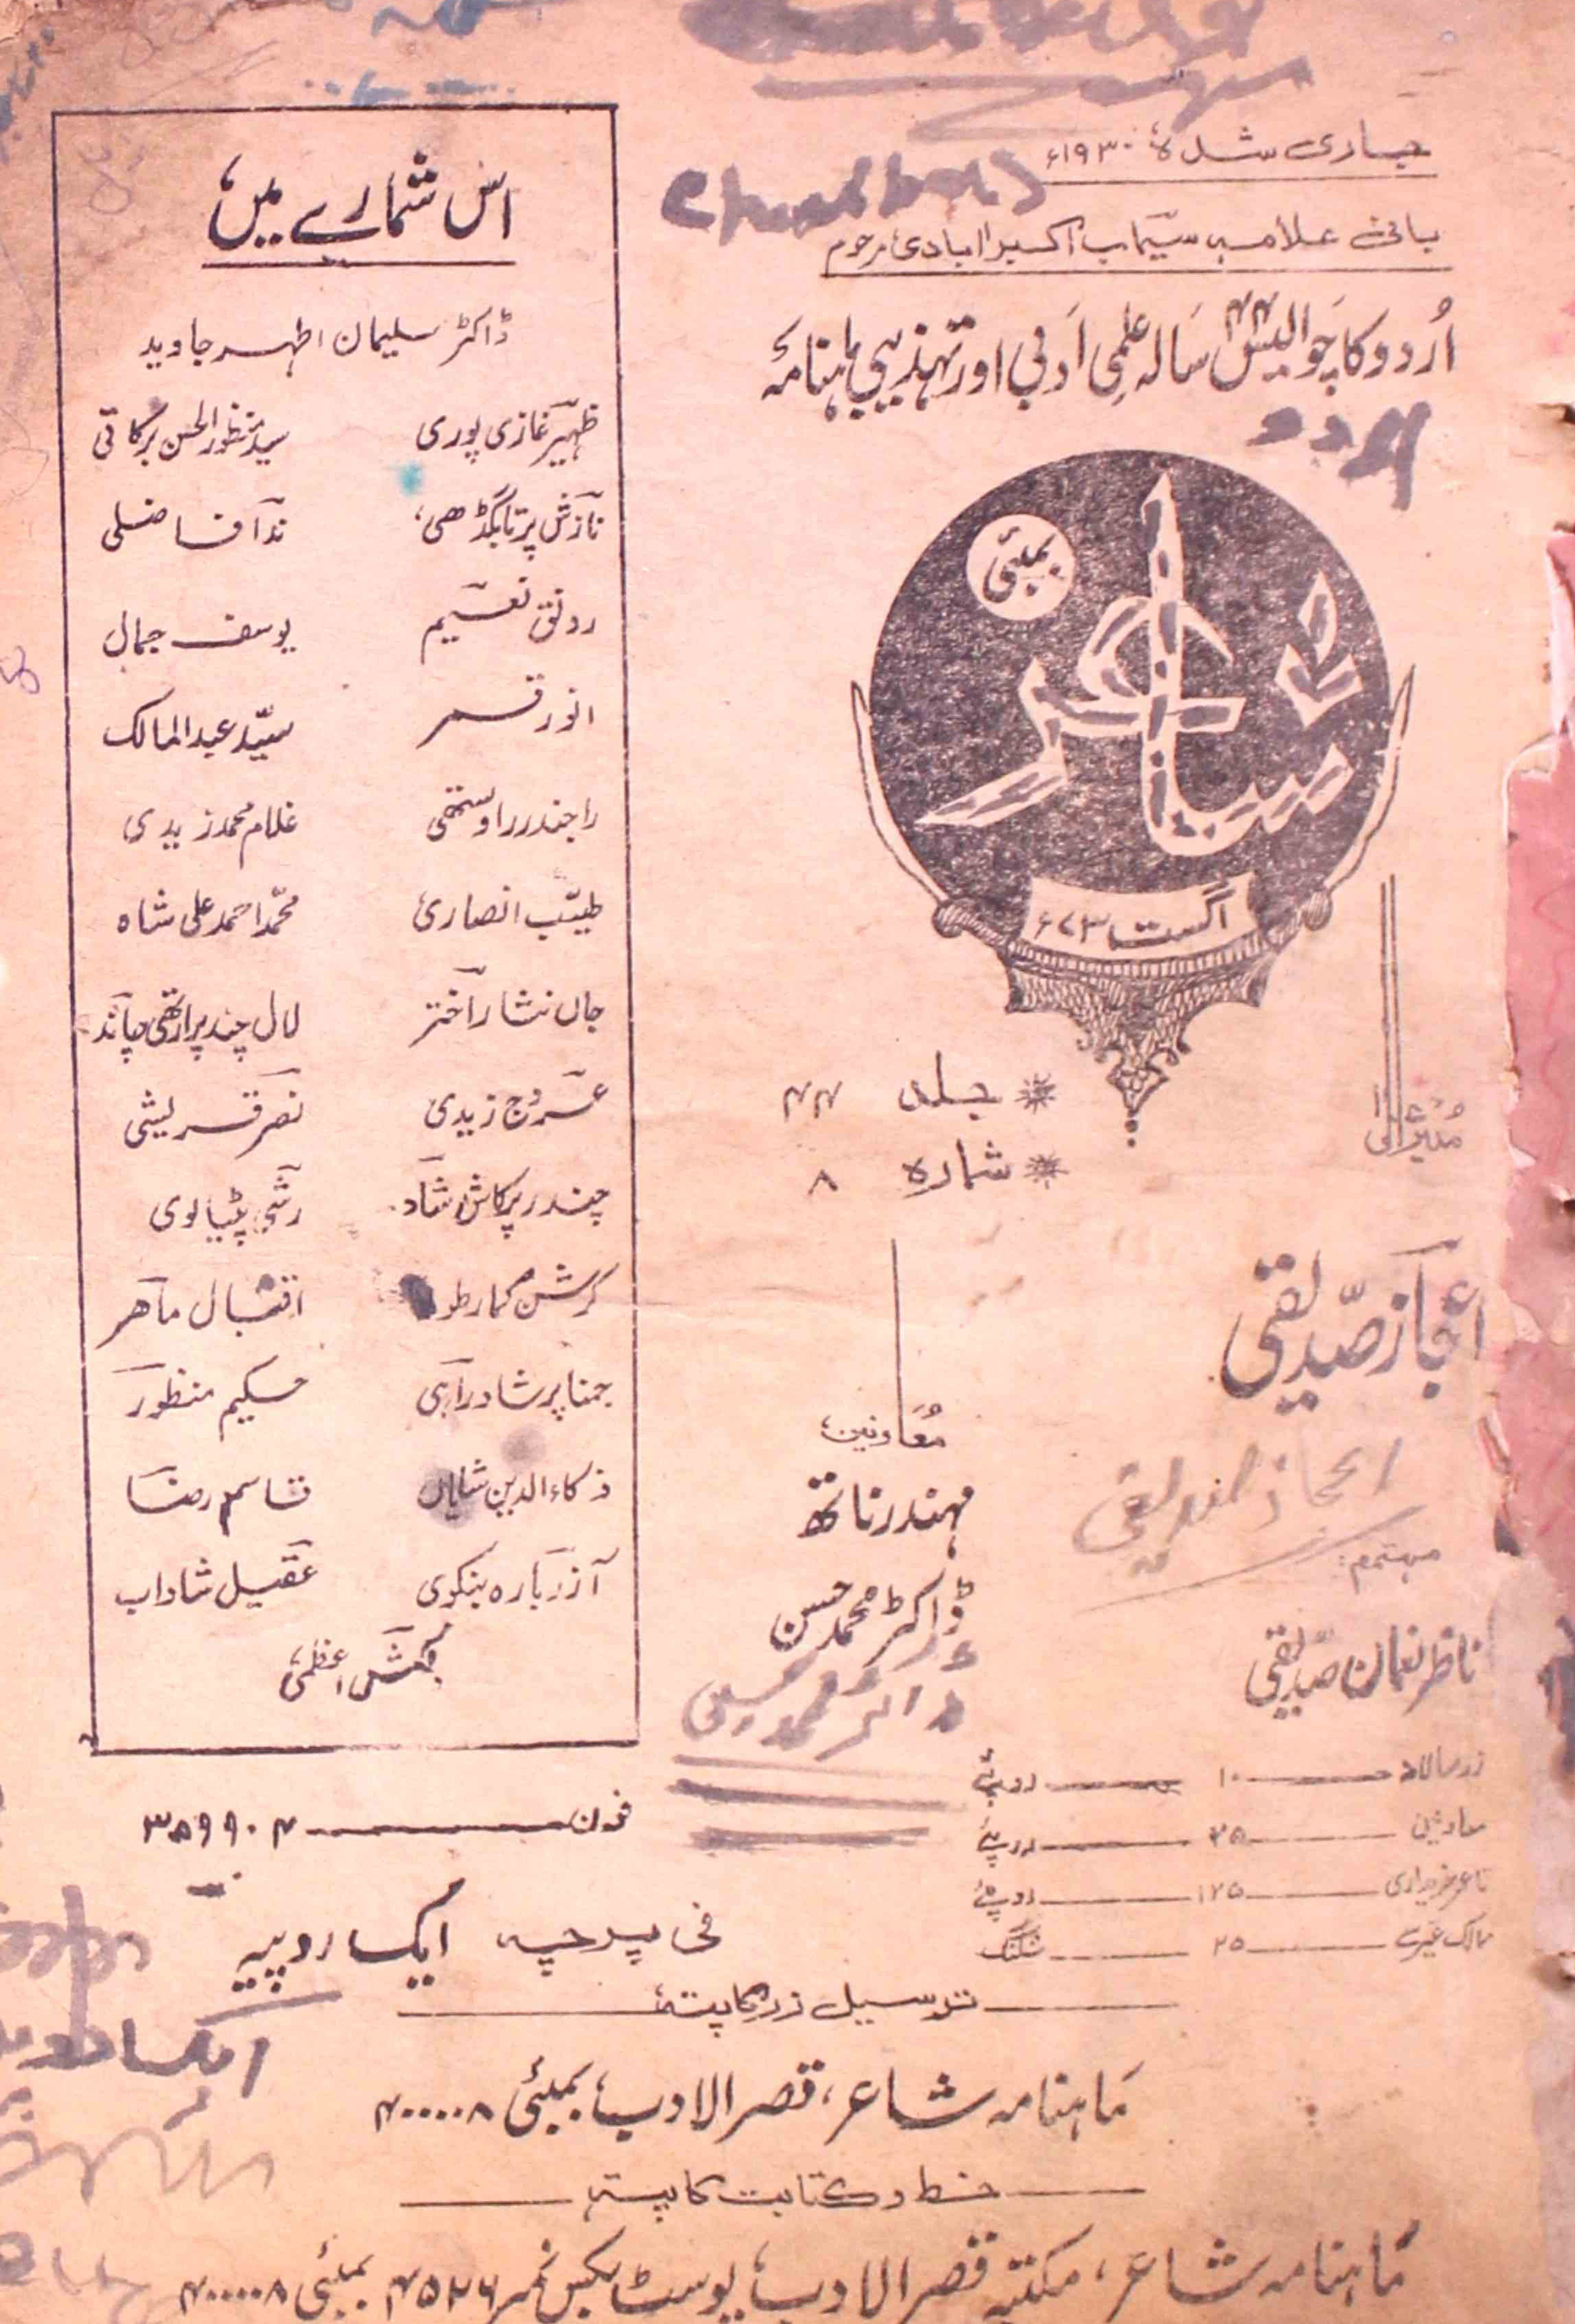 جاری شدہ ۱۹۳۰ء
بانی علامہ سیماب اکبرآبادی مرحوم
اُردو کا چوالیس ۴۴ سالہ علمی ادبی اور تہذیبی ماہنامہ
اردو
شاعر
بمبئی
اگست ۷۳ء
جلد ۴۴
شمارہ ۸
مدیر اعلیٰ
اعجاز صدیقی
اعجاز صدیقی
مہتمم:
ناظر نعمان صدیقی
معاونین
مہندر ناتھ
ڈاکٹر محمد حسن
ڈاکٹر محمد حسن
زر سالانہ ۱۰ روپئے
معاونین ۲۵ روپئے
تا عمر خریداری ۱۲۵ روپئے
ممالک غیر سے ۲۵ شلنگ
اس شمارے میں
ڈاکٹر سلیمان اطہر جاوید
ظہیر غازی پوری سید منظور الحسن برکاتی
نازش پرتابگڈھی، ندا فاضلی
رونق نعیم یوسف جمال
انور قمر سیّد عبدالمالک
راجندر راوستھی غلام محمد زیدی
طیّب انصاری محمّد احمد علی شاہ
جاں نثار اختر لال چند پرارتھی چاند
عروج زیدی نصر قریشی
چندر پرکاش شاد رشی پٹیالوی
کرشن کمار طور اقبال ماہر
جمنا پرشاد راہی حکیم منظور
ذکاءالدین شایاں قاسم رضا
آذر بارہ بنکوی عقیل شاداب
اعظمی
فون ۳۵۹۹۰۴
فی پرچہ ایک روپیہ
ترسیل زر کا پتہ
ماہنامہ شاعر، قصر الادب، بمبئی ۴۰۰۰۰۸
خط و کتابت کا پتہ
ماہنامہ شاعر، مکتبہ قصر الادب، پوسٹ بکس نمبر ۴۵۲۶ بمبئی ۴۰۰۰۰۸